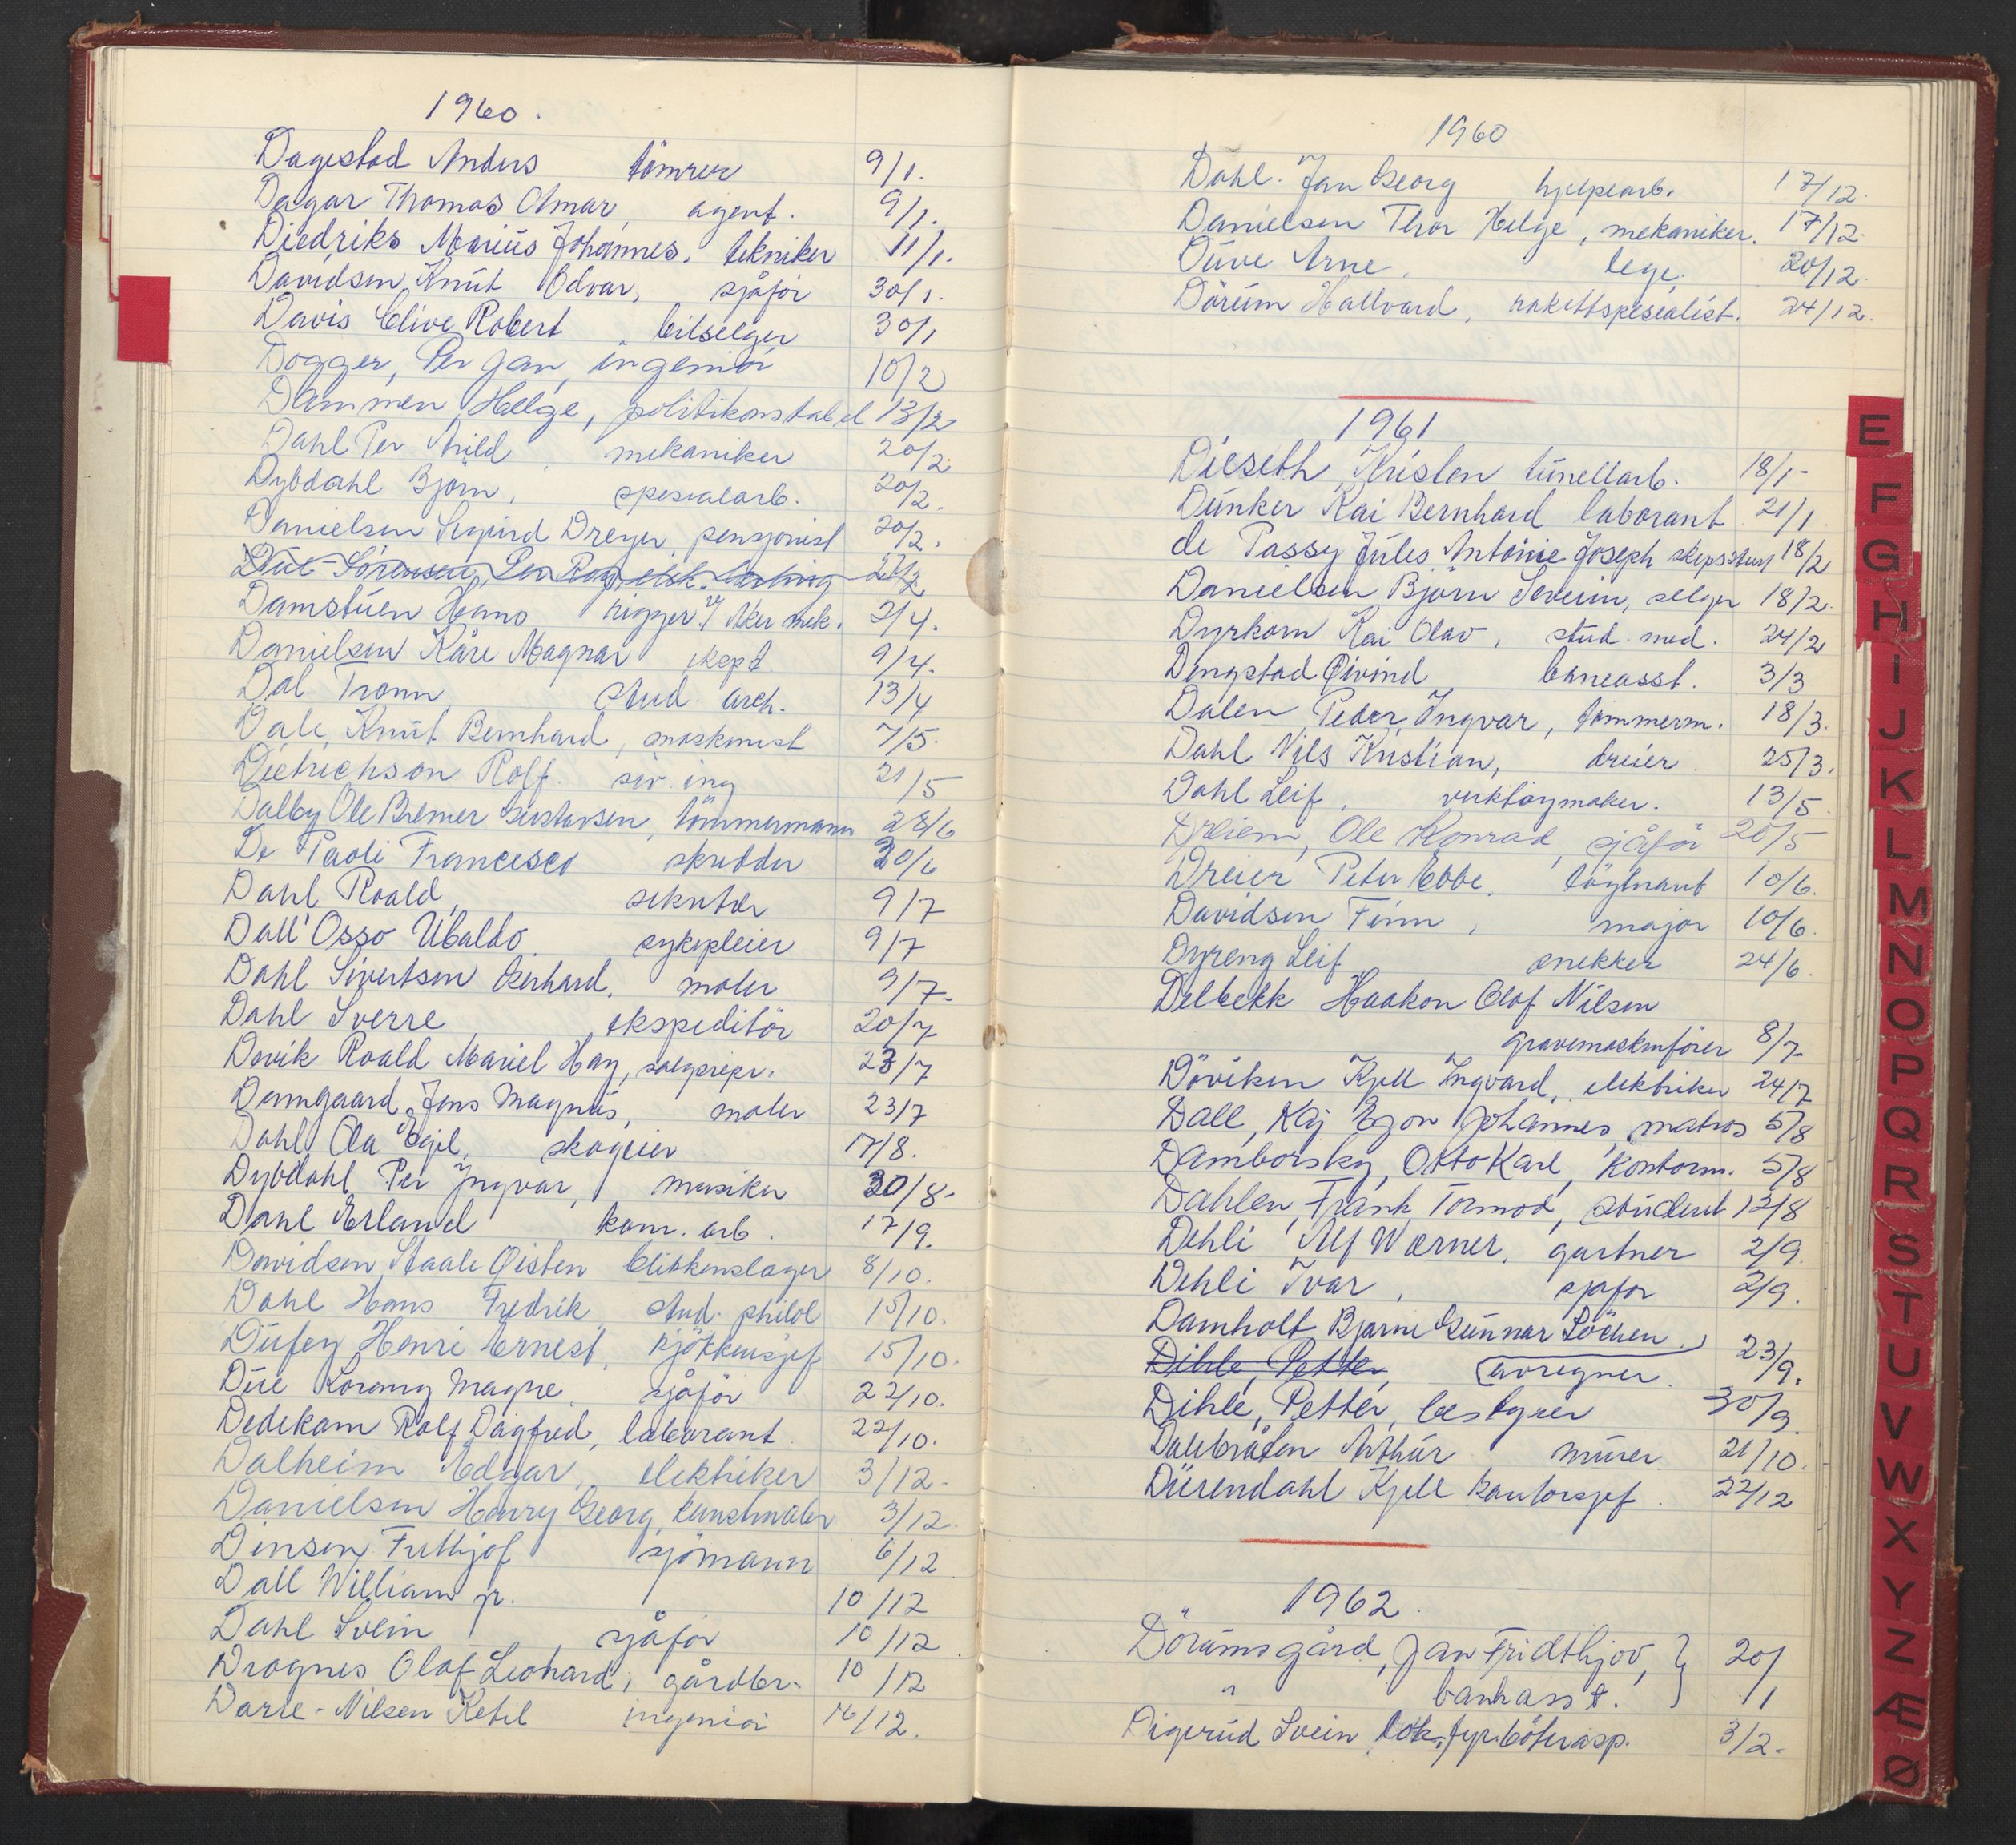 1960.
Dagestad Anders tömrer 9/1.
Dagar Thomas Omar, agent. 9/1.
Diedriks Marius Johannes. tekniker 11/1.
Davidsen Knut Odvar, sjåför 30/1.
Davis Clive Robert bilselger 30/1
Dogger, Per Jan, ingeniör 10/2
Dammen Helge, politikonstabel 13/2
Dahl Per Arild, mekaniker 20/2.
Dybdahl Björn, spesialarb. 20/2.
Danielsen Sigurd Dreyer, pensjonist 20/2.
Sörensen, Per Roy, elsk.
Damstuen Hans rigger v/ Aker mek. 2/4.
Danielsen Kåre Magnar eksp. 9/4.
Dal Tronn stud. arch. 13/4
Dale, Knut Bernhard, maskinist 7/5.
Dietrichson Rolf. siv. ing 21/5
Dalby Ole Bremer Gustavsen, tömmermann 28/6
De Paoli Francesco skredder 30/6
Dahl Roald, sekretær 9/7
Dall'Osso Ubaldo sykepleier 9/7
Dahl Sivertsen Gerhard, maler 9/7.
Dahl Sverre, ekspeditör 20/7
Dovik Roald Mariel Hay, salgsrepr. 23/7
Damgaard, Jens Magnus, maler 23/7
Dahl Ola Egil, skogeier 17/8.
Dybdahl Per Yngvar, musiker 30/8.
Dahl Erland kom. arb. 17/9.
Davidsen, Staale Øisten blikkenslager 8/10.
Dahl Hans Fredrik stud. philol 15/10.
Dufey Henri Ernest, kjökkensjef 15/10.
Due Korang Magne, sjåför 22/10.
Dedekam Rolf Dagfred, laborant 22/10.
Dalheim Edgar, elektriker 3/12.
Danielsen Henry Georg, kunstmaler 3/12.
Dinsen Frithjof sjömann 6/12
Dall William jr. 10/12
Dahl Svein, sjåför 10/12
Dragnes Olaf Leonard, gårdbr. 10/12
Darre-Nilsen Ketil ingeniör 16/12.
1960
Dahl. Jan Georg hjelpearb. 17/12.
Danielsen Thor Helge, mekaniker. 17/12.
Duve Arne. lege. 20/12.
Dörum Hallvard, rakettspesialist. 24/12.
1961
Dieseth, Kristen tunellarb. 18/1-
Dunker Kai Bernhard laborant 21/1
de Passy Jules Antoine Joseph 18/2
Danielsen Björn Severin, selger 18/2.
Dyrkorn Kai Olav, stud. med. 24/2
Dengstad Øivind baneasst. 3/3
Dalen Peder Ingvar, tömmerm. 18/3.
Dahl Nils Kristian, dreier 25/3.
Dahl Leif, verktöymaker. 13/5.
Dreiem, Ole Konrad, sjåför 20/5
Dreier Peter Ebbe, löytnant 10/6.
Davidsen Finn, major 10/6.
Dyreng Leif snekker 24/6.
Delbekk Haakon Olof Nilsen
gravemaskinförer 8/7
Döviken Kjell Ingvard, elektriker 24/7
Dall, Kaj Egon Johannes, matros 5/8
Damborsky, Otto Karl, kontorm. 5/8
Dahlen, Frank Tormod, student 12/8
Dehli Alf Werner, gartner 2/9.
Dehli Ivar, sjåför 2/9.
Damholt Bjarne Gunnar Löchen.
Dihle, Petter, avregner. 23/9.
Dihle, Petter, bestyrer 30/9.
Dalebråten Arthur murer 21/10.
Durendahl Kjell kontorsjef. 22/12
1962.
Dörumsgård, Jan Fridthjov, } 20/1
" bankasst.
Digerud Svein, lok.fyrböterasp. 3/2.
E
F
G
H
I
J
K
L
M
N
O
P
Q
R
S
T
U
V
W
X
Y
Z
Æ
Ø